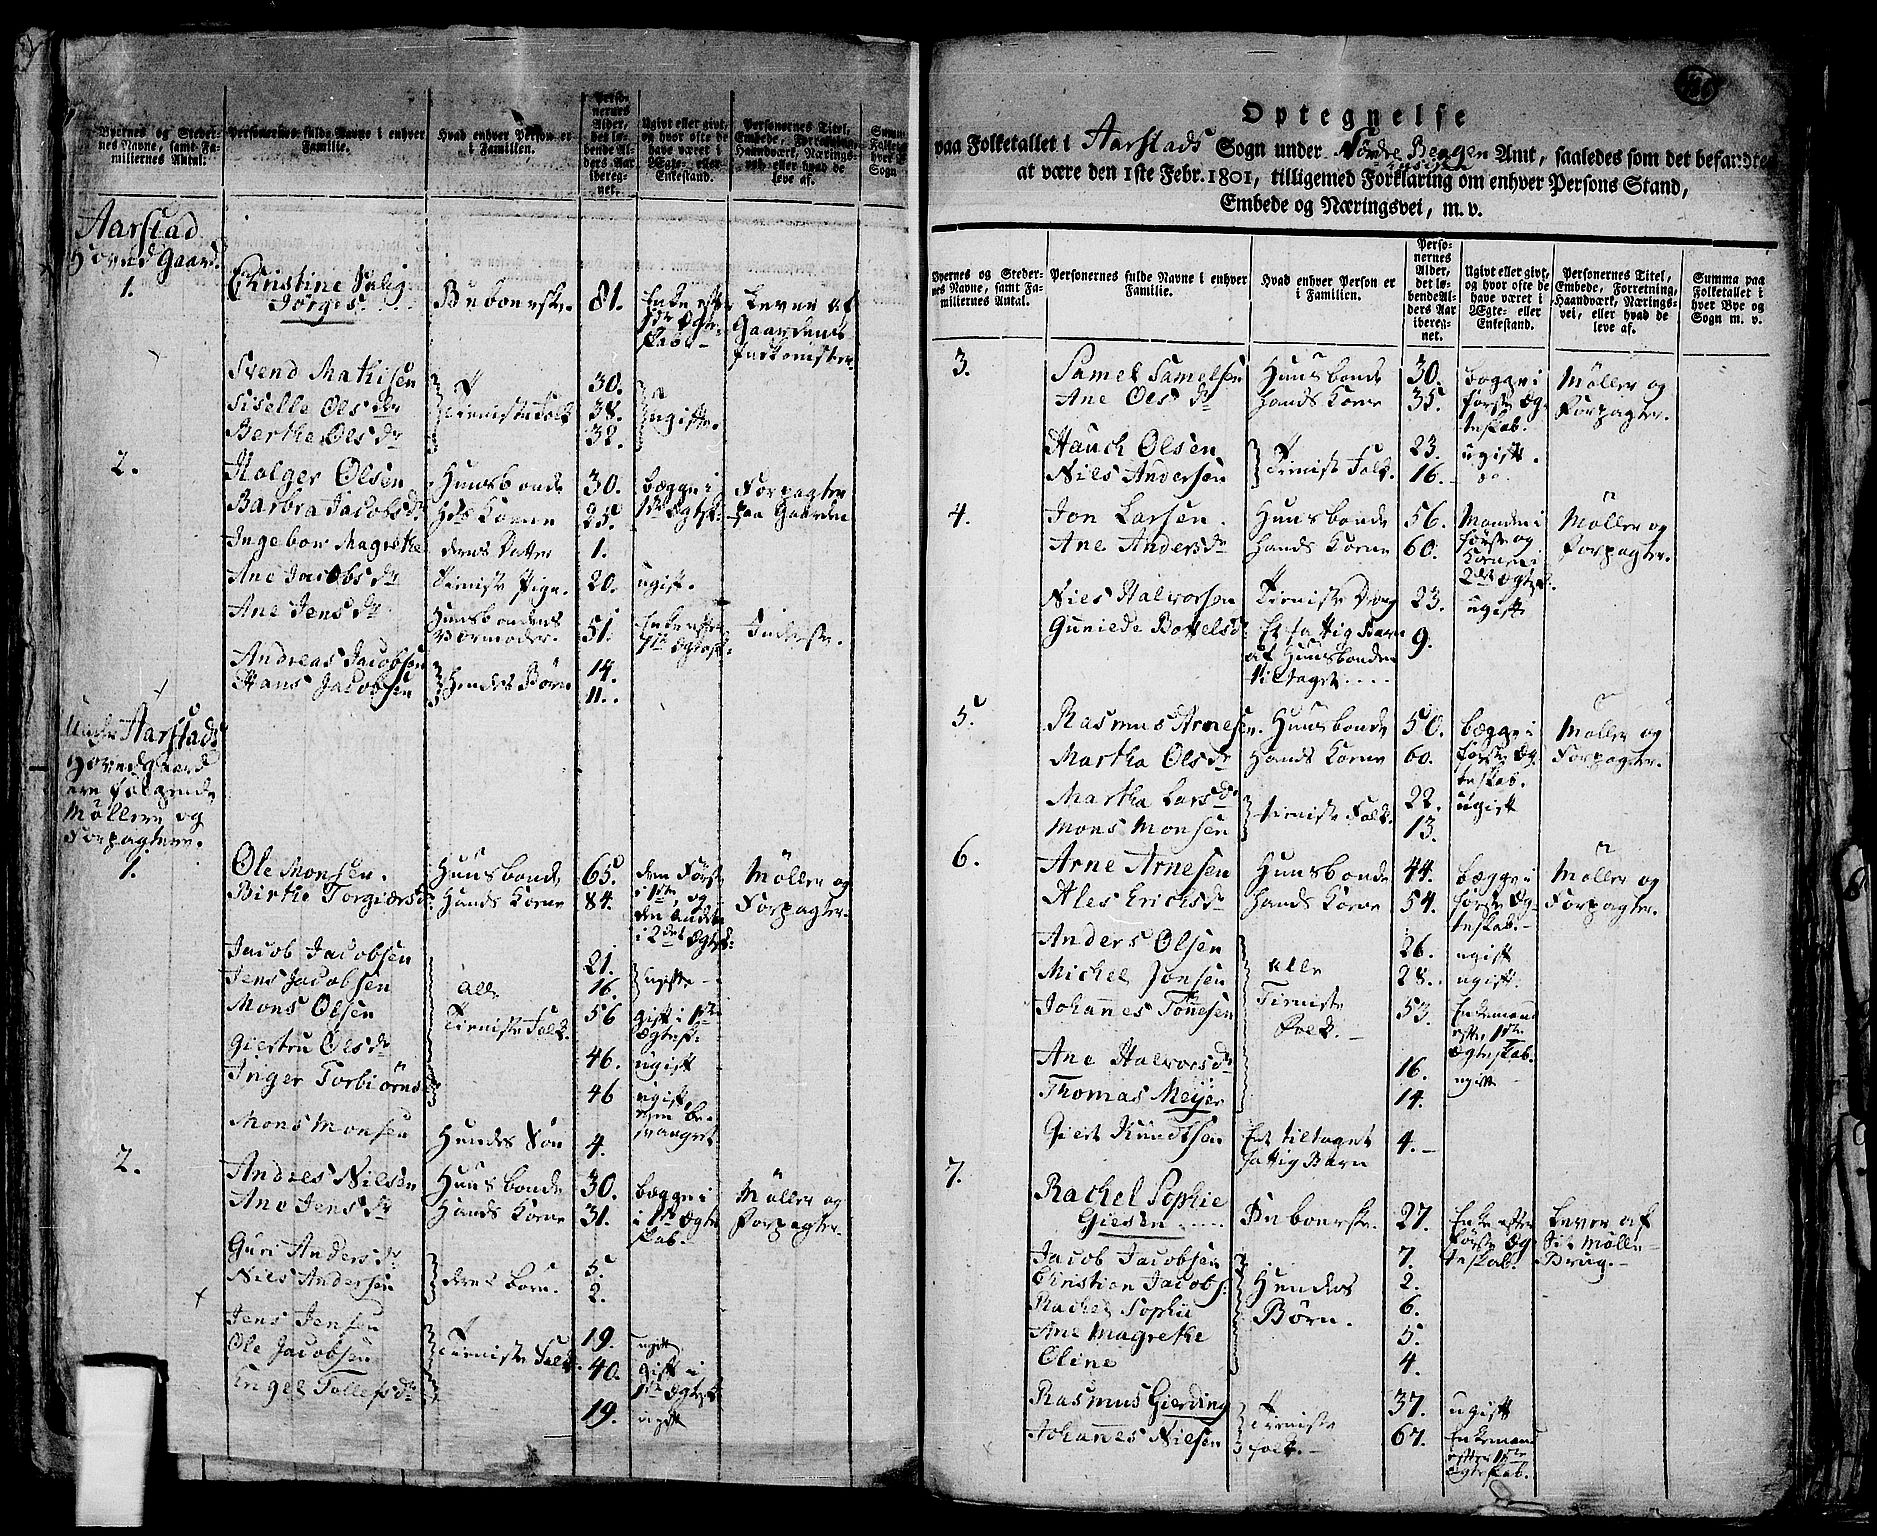 Byernes og Steder-
nes Navne, samt Fa-
miliernes Antal.
Personernes fulde Navne i enhver
Familie.
Hvad enhver Person er
i Familien.
Perso-
nernes
Alder,
det lø-
bende Al-
ders Aar
iberegnet.
Ugivt eller givt,
og hvor ofte de
have været i
Ægte- eller
Enkestand.
Personernes Titel,
Embede, Forretning,
Haandværk, Nærings-
vei, eller hvad de
leve af.
Aarstad
Hoved Gaard.
1. Christine Salig
Jørgis. Beboerske. 81. Enke efter Lever af
1ste Ægte- Gaardens
skab Indkomster.
Svend Mathisen 30.
Siselle Olsdr Tieniste Folk 38. ugifte.
Berthe Olsdr 32.
2. Holger Olsen Huusbonde 30. begge i Forpagter
Barbra Jacobsdr Hds Kone 25. 1ste Ægtesk. paa Gaarden
Ingebor Magrethe deres Datter 1.
Ane Jacobsdr Tieniste Pige. 20. ugift.
Ane Jensdr Huusbondens
Værmoder. 51. Enke efter
1ste Ægtesk. Inderste.
Andreas Jacobsen 14.
Hans Jacobsen hendes Børn 11.
Under Aarstads
Hovedgaard
ere følgende
Møllere og
Forpagtere.
1. Ole Monsen. Huusbonde 65. den Første Møller og
Birthe Torgiersdr Hands Kone 84. i 1ste, og Forpagter.
den anden
i 2det Ægtesk:
Jacob Jacobsen 21.
Jens Jacobsen alle 16. ugifte
Mons Olsen Tieniste Folk. 56 gift i 1ste
Ægtesk:
Giertru Olsdr 46. ugift
Inger Torbiørnsdr 46 ugift,
men be-
svangret.
Mons Monsen Hendes Søn 4.
2. Andres Nilsen Huusbonde 30. begge i Møller og
Ane Jensdr Hands Kone 31. i 1ste Ægte Forpagter.
skab.
Guri Andersdr 5.
Niels Andersen deres Børn. 2.
Jens Jensen 19. ugift
Ole Jacobsen Tieniste Folk. 40. gift i
1ste Ægtesk
Engel Tollefsdr 19. ugift
Optegnelse
paa Folketallet i Aarstads Sogn under Nordre Bergen Amt, saaledes som det befandtes
huus
at være den 1ste Febr. 1801, tilligemed Forklaring om enhver Persons Stand,
Embede og Næringsvei, m. v.
Byernes og Steder-
nes Navne, samt Fa-
miliernes Antal.
Personernes fulde Navne i enhver
Familie.
Hvad enhver Person er
i Familien.
Perso-
nernes
Alder,
det lø-
bende Al-
ders Aar
ibereg-
net.
Ugivt eller givt,
og hvor ofte de
have været i
Ægte- eller
Enkestand.
Personernes Titel,
Embede, Forretning,
Haandværk, Nærings-
vei, eller hvad de
leve af.
Summa paa
Folketallet i
hver Bye og
Sogn m. v.
3. Samel Samelsen Huusbonde 30. begge i Møller og
Ane Olsdr Hands Kone 35. første Æg- Forpagter.
teskab.
Hauch Olsen 23. ugift.
Niels Andersen Tieniste Folk. 16. do.
4. Jon Larsen. Huusbonde 56. Manden i Møller og
Ane Andersdr Hands Kone 60. første og Forpagter.
Konen i
2det Ægtesk.
Nies Halvorsen Tieniste Dreng 23. ugift
Guniede Bottelsdr Et fattig Barn 9.
af Huusbonden
tiltaget
5. Rasmus Arnesen. Huusbonde 50. begge i Møller og
Martha Olsdr Hands Kone 60. første Æg- Forpagter.
teskab.
Martha Larsdr 22. ugift
Mons Monsen tieniste Folk. 13.
6. Arne Arnesen Huusbonde 44. begge i Møller og
Ales Ericksdr Hands Kone 54. første Æg- Forpagter.
teskab.
Anders Olsen 26. ugift
Michel Jonsen alle 28. ugift.
Johannes Tønnesen Tieniste 53. Enkemand
Folk. efter 1ste
Ægteskab.
Ane Halvorsdr 16. ugift
Thomas Meyer 14.
Giert Knudtsen Et tiltaget 4.
fattig Barn
7. Rachel Sophie
Giesen Beboerske. 27. Enke efter Lever af
første Æg- Sit Mølle-
teskab. Brug.
Jacob Jacobsen 7.
Christian Jacobs: Hendes 2.
Rachel Sophie Børn. 6.
Ane Magrethe 5.
Oline 4.
Rasmus Gierding Tieniste 37. ugift
Johannes Nielsen folk. 67. Enkemand
efter 1ste
Ægteskab.